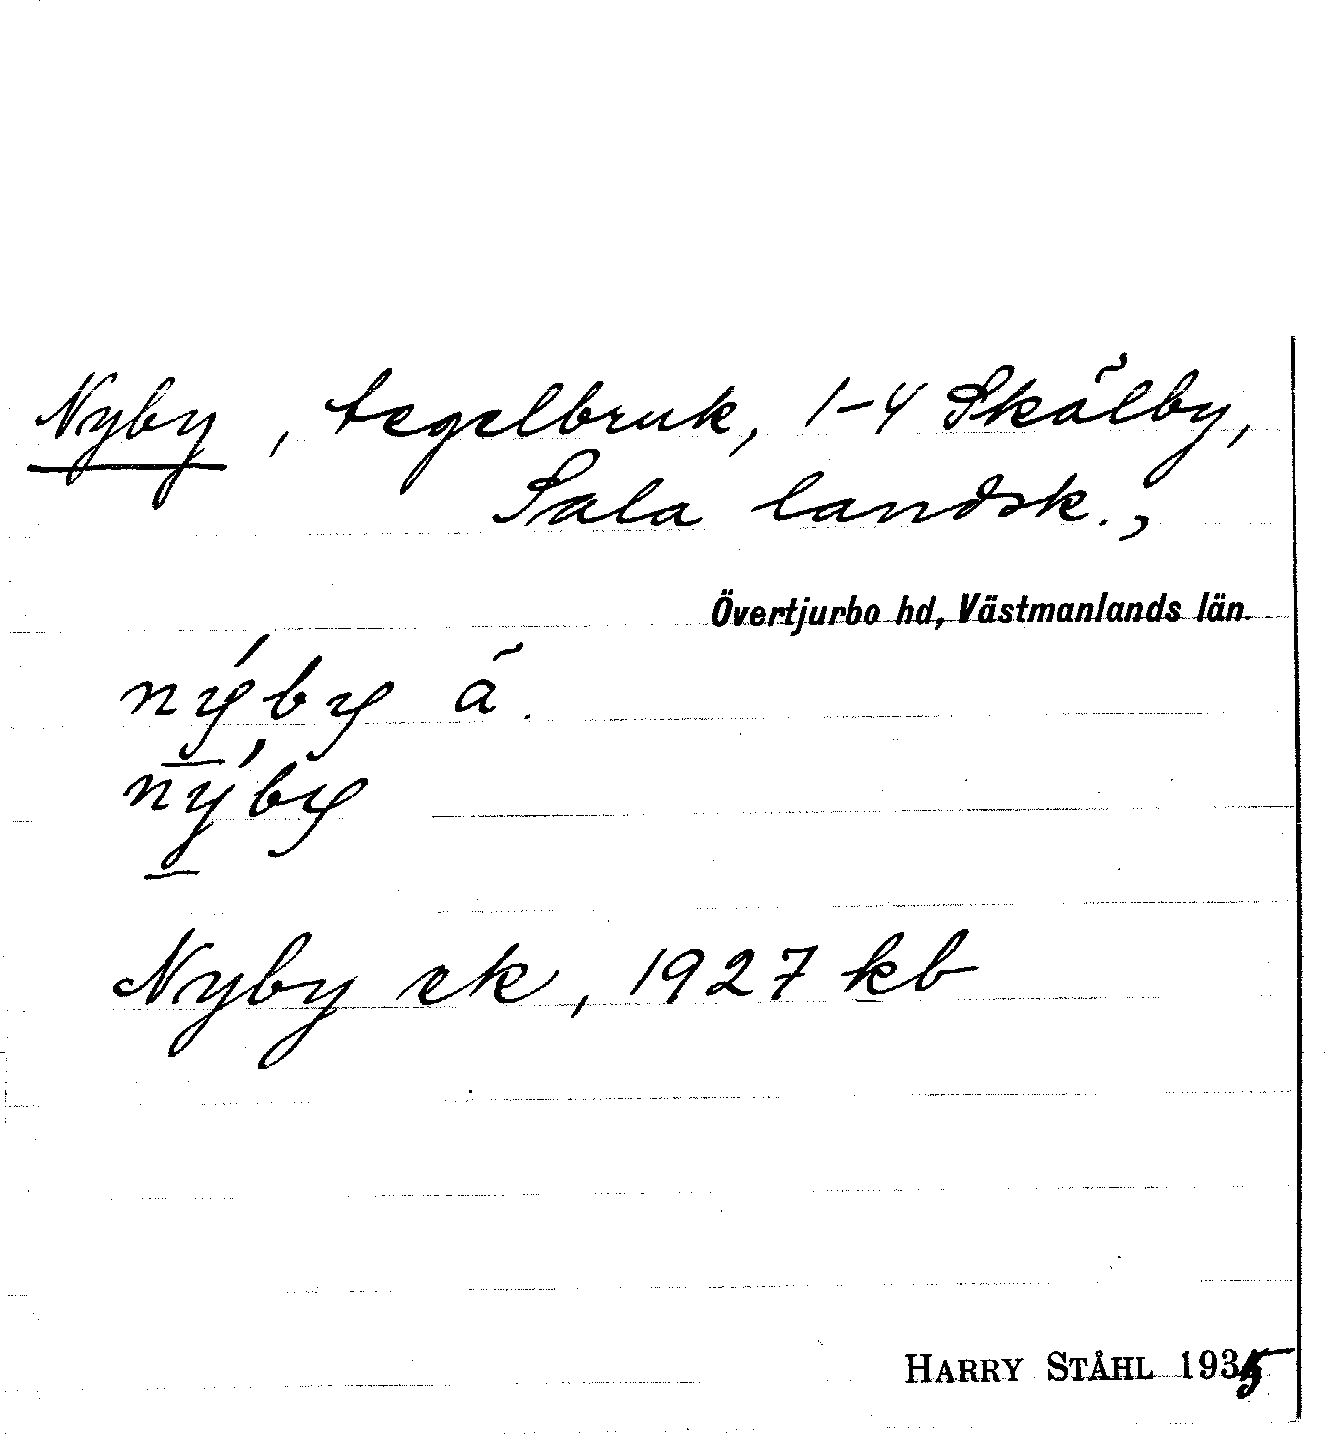 Nyby, tegelbruk, 1-4 Skälby,
Sala landsk.,
Övertjurbo hd, Västmanlands län.
nýby å.
nýby
Nyby ek, 1927 kb
HARRY STÅHL 1935